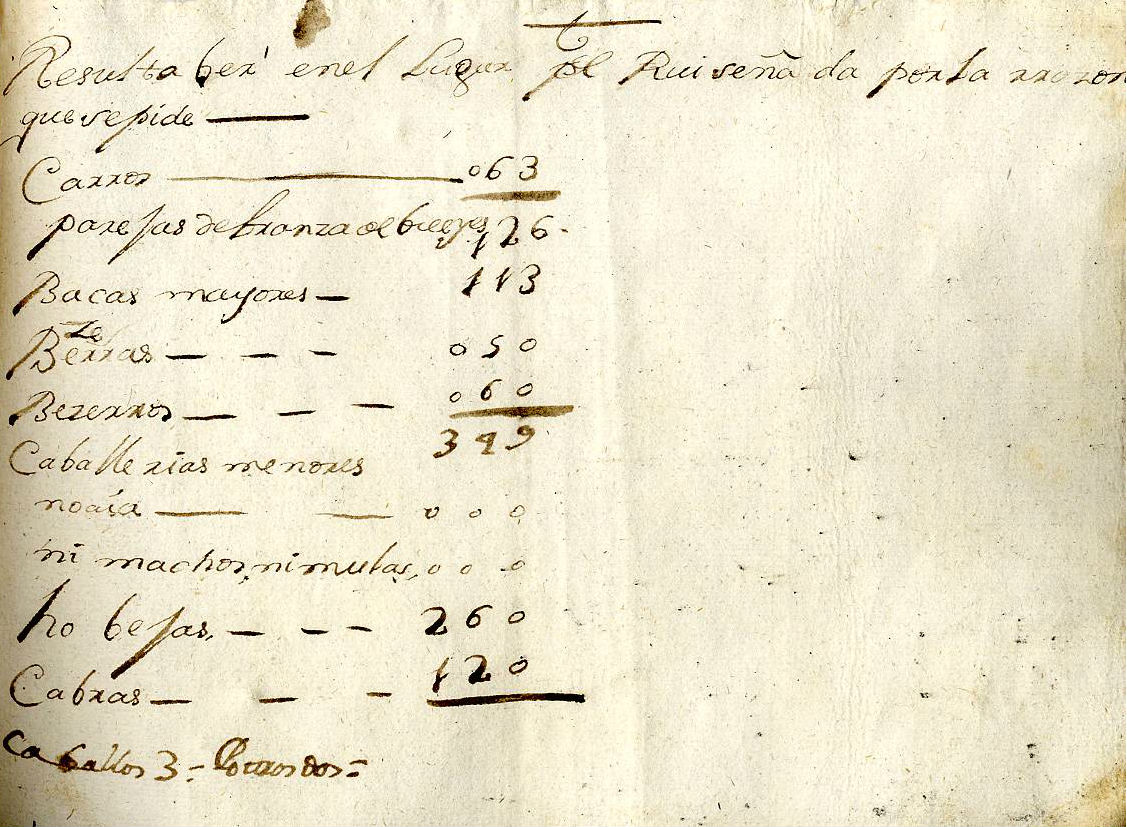 Resulta ber enel Lugar de Ruiseña da porla rrazon
quesepide
Carros 063
parejas de branza de bueyes 126
Bacas mayores 113
Bezerras 050
Bezerros 060
349
Caballerias menores
noaia 000
ni machos, ni mulas, 000
ho bejas, 260
Cabras 120
Caballos 3 = Potros dos =